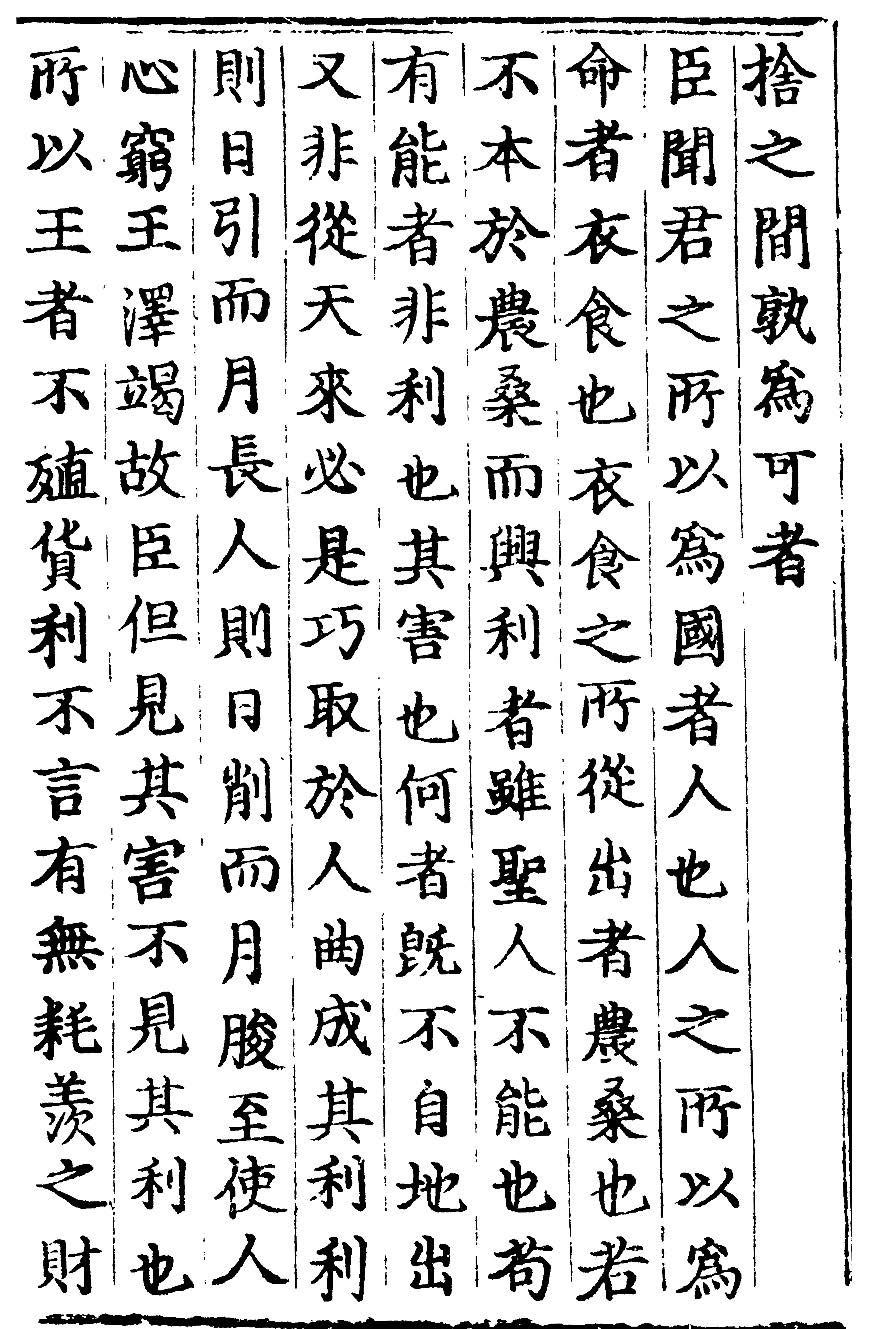 捨之間孰爲可者
臣聞君之所以爲國者人也人之所以爲
命者衣食也衣食之所從出者農桑也若
不本於農桑而興利者雖聖人不能也苟
有能者非利也其害也何者旣不自地出
又非從天來必是巧取於人曲成其利利
則日引而月長人則日削而月朘至使人
心窮王澤竭故臣但見其害不見其利也
所以王者不殖貨利不言有無耗羨之財